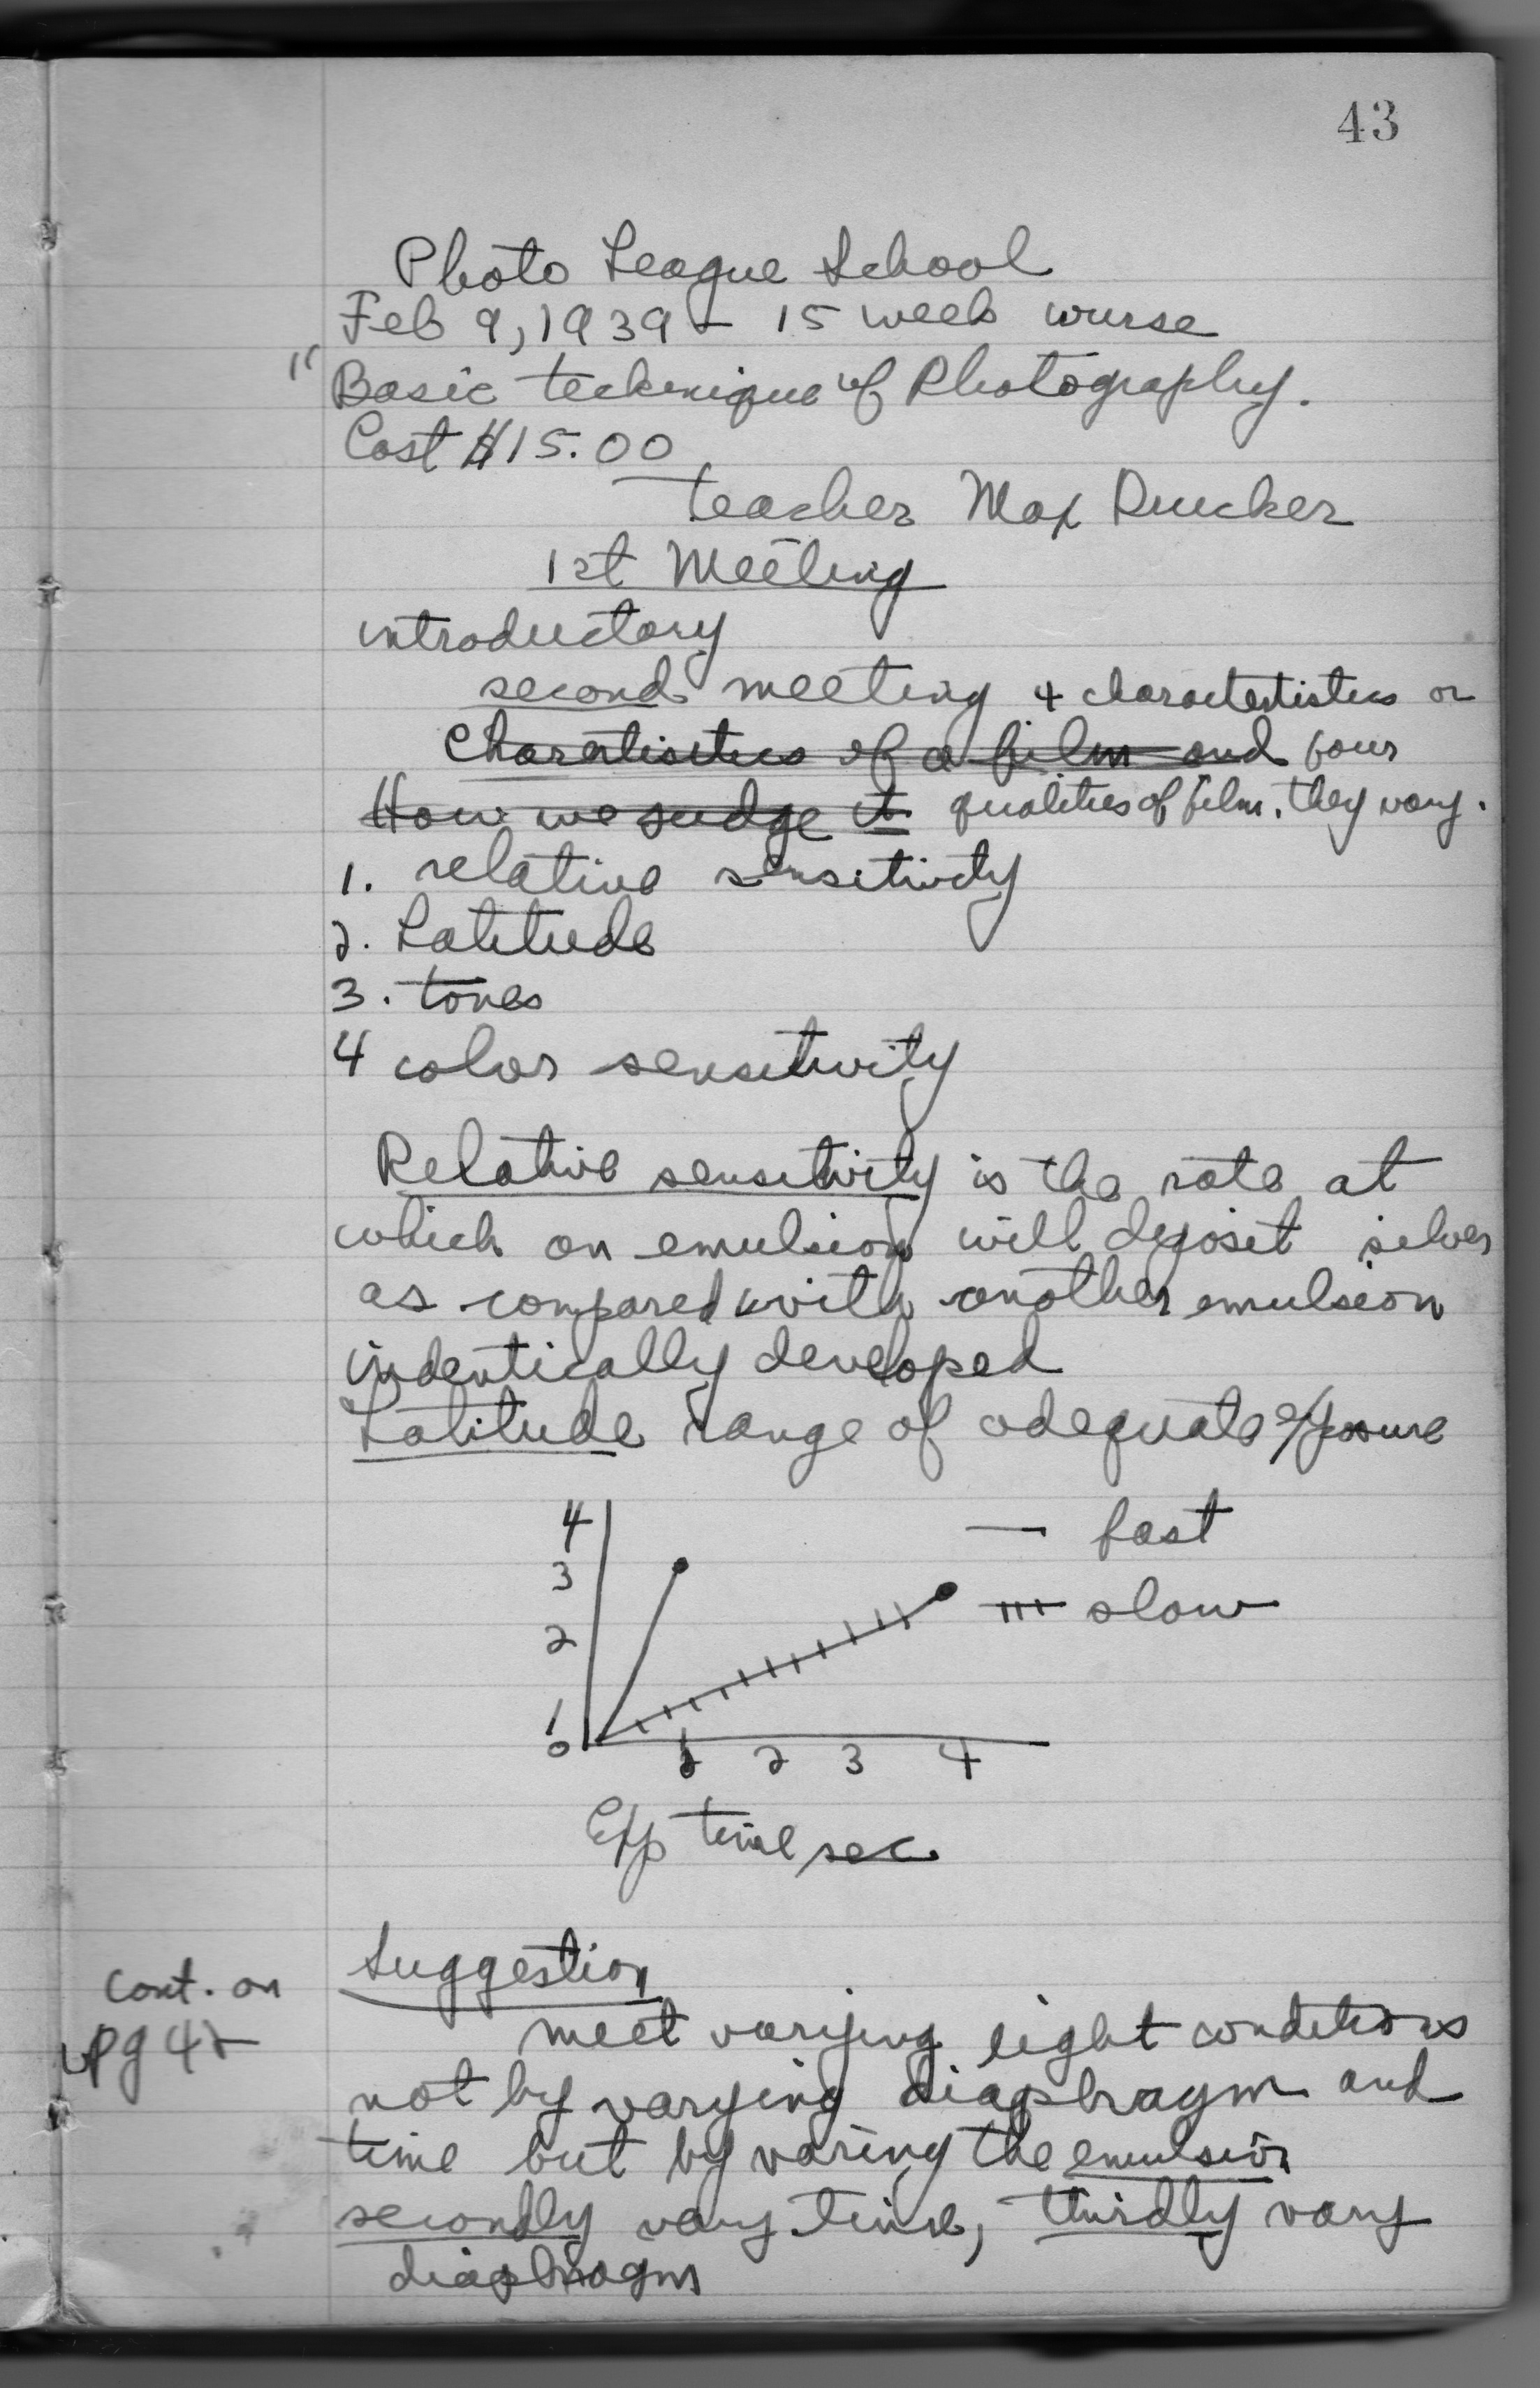 43
Photo League School
Feb 9, 1939 - 15 week course
"Basic technique of Photography.
Cost $15.00
Teacher Max Drucker
1st Meeting
introductory
second meeting 4 charactertistics or
Charatisitics of a film and four
How we judge it. qualities of film. they vary.
1. relative sensitivity
2. Latitude
3. tones
4 color sensitivity
Relative sensitivity is the rate at
which an emulsion will deposit silver
as compared with another emulsion
indentically developed
Latitude range of adequate exposure
4
3
2
1
0
— fast
slow
1 2 3 4
Exp time sec.
Suggestion
Cont. on
pg 42
meet varying light conditions
not by varying diaphragm and
time but by varing the emulsion
secondly vary time, thirdly vary
diaphragm